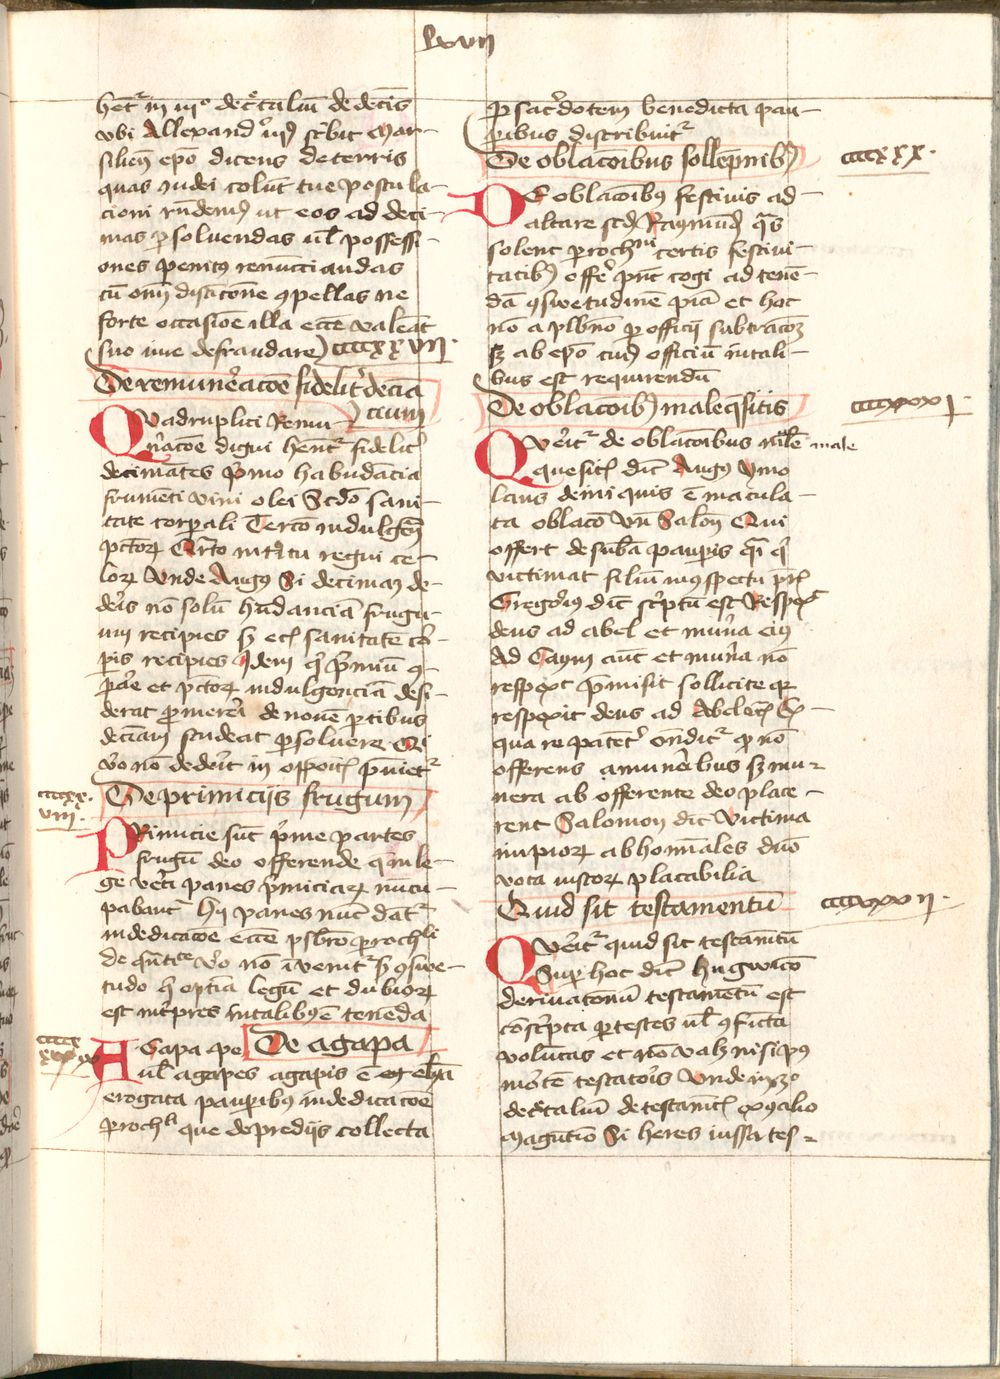 lxvii
hetur in iiio decretalium de decis
vbi Allexander iijus scribit mar-
siliens epo dicens de terris
quas iudei colunt tue postula-
cioni rndemus ut eos ad deci-
mas psoluendas ul possessi-
ones penitus renuncciandas
cu omi districcone 9pellas ne
forte occasioe illa ecce valeat
suo iure defraudare ccccxxvii.
De remuneracoe fidelitr decia
cium
Quadruplici Remu-
nracoe digni hentr fidelitr
decimantes Primo habudancia
frumenti vini olei Scdo sani-
tate corporali Tercio indulgen
pctor Qrto introitu regni ce-
lor Vnde Augus Si decimam de-
deris no solu habundancia frugu-
um recipies sz ecia sanitate cor-
poris recipies Idem qi primiu 9-
parare et pctor indulgencia desi-
derat promereri de nouem ptibus
deciam studeat psoluere Qui
vero no dederit in opposito punietur
De primicijs frugum
ccccxx.
viii.
Primicie sut prime partes
frugu deo offerende q in le-
ge veteri panes primiciar nuncu-
pabantur hij panes nuc dantur
in dedicacoe eccle psbro prochli
de qntitate vero no inuenitr sz 9sue-
tudo q optima legu et dubior
est interpres in talibus e tenenda
De agapa
cccc
xxix
Agapa ape
ul agapes agapis e et elia
erogata pauperibus in dedicacoe
prochli que de predijs collecta
p sacerdotem benedicta pau-
pibus distribuitr
De oblacoibus sollepnibus
ccccxxx.
De oblacoibus festiuis ad
altare scdm Raymund qas
solent prochni certis festiui-
tatibus offerre pnt cogi ad tene-
da 9suetudine pia et hoc
no a plbno p officij subtraccoz
sz ab epo cuius officiu in tali-
bus est requirendu
De oblacoibus male qsitis
ccccxxxi.
Queritr de oblacoibus male
quesitis dicit Augus ymo-
lans de iniquis e macula-
ta oblaco Vn Salon Qui
offert de suba pauperis qi qi
victimat filiu in 9spectu pris
Gregorius dict scriptu est Respexit
deus ad abel et munera eius
Ad Caym aut et munera no
respexit premisit sollicite qr
respexit deus ad Abelem Ex
qua re patentr onditr qr no
offerens a muneribus sz mu-
nera ab offerente deo place-
rent Salomon dict Victima
impior abhominales dno
vota iustor placabilia
Quid sit testamentu
ccccxxxii.
Queritr quid sit testamtu
Super hoc dict hugwico
deriuatonu testametu est
conscripta p testes ul 9ficta
voluntas et no valz nisi pus
morte testatoris Vnde in 3o
decretaliu de testamtis ex9alio
maguntino Si heres iussa tes-